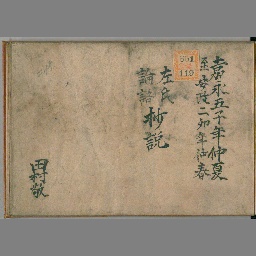 嘉永五子年仲夏
至安政二卯年沽春
左氏
論語
抄説
田村敬
801
119